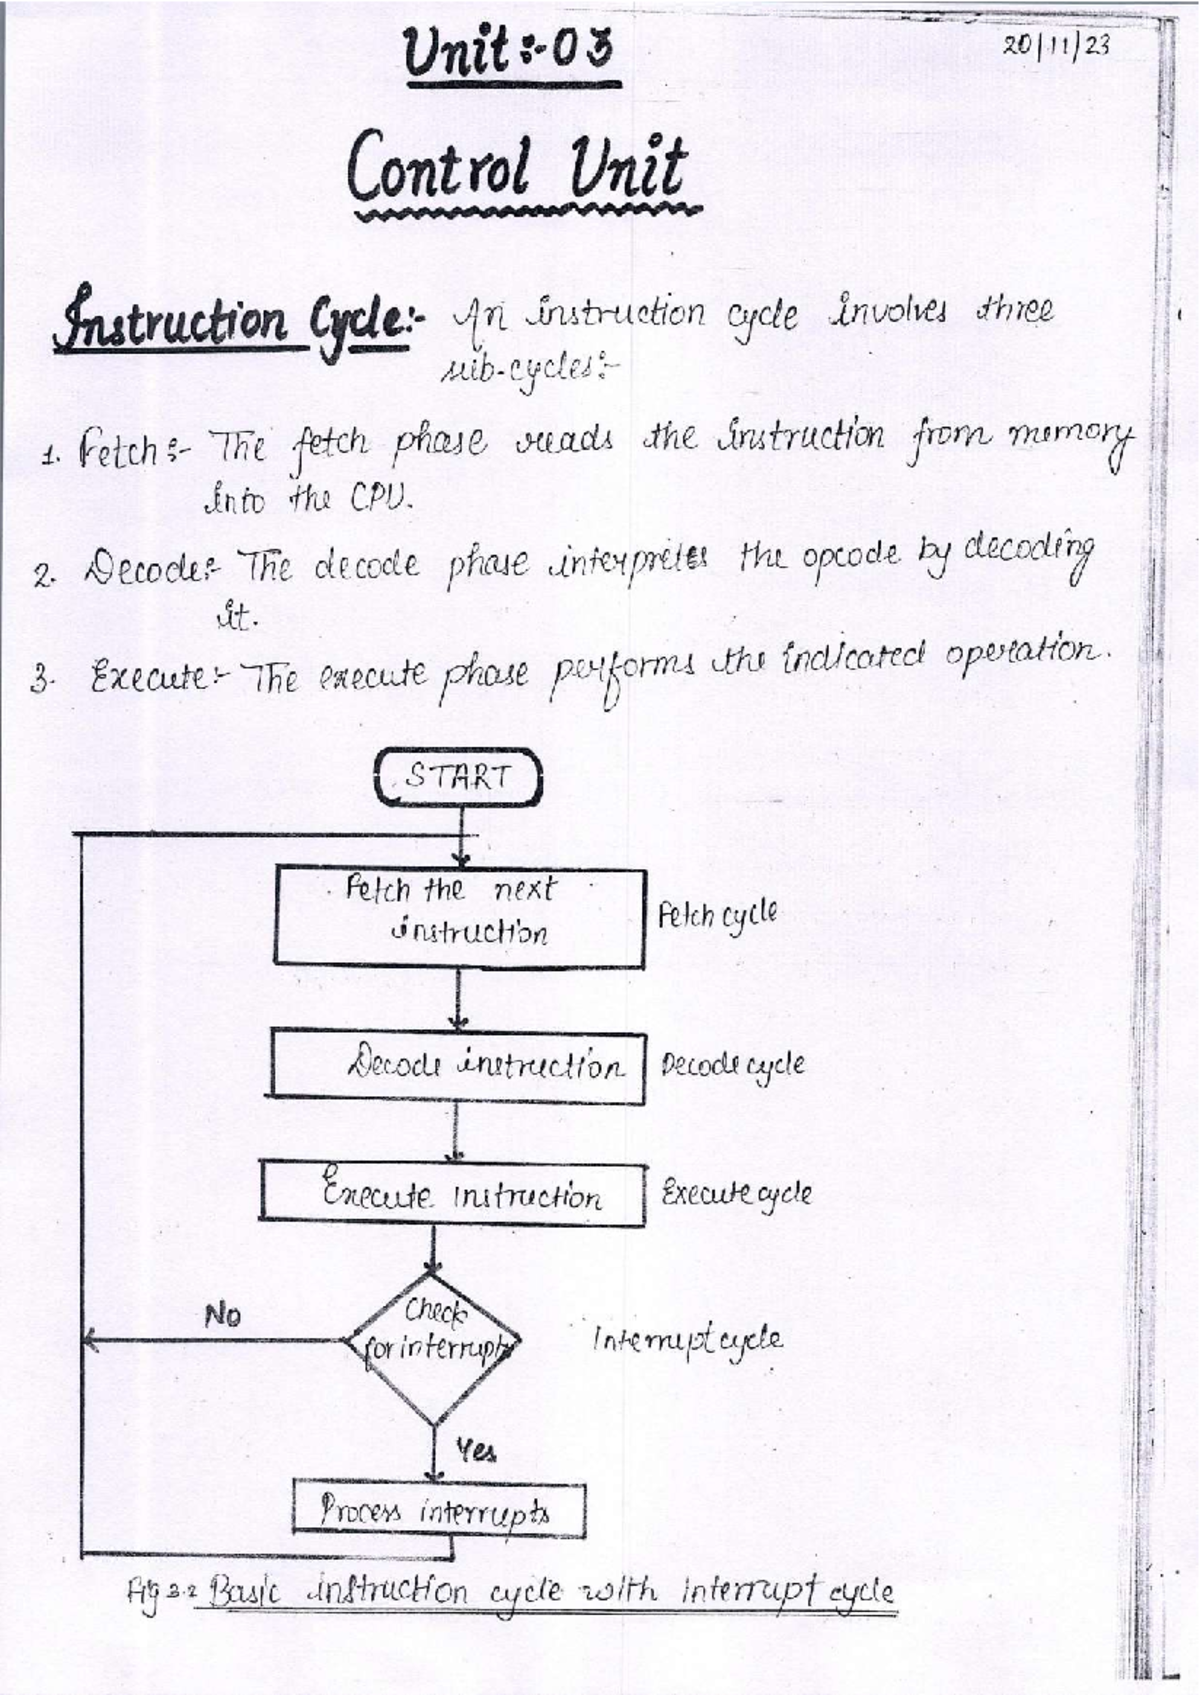 Unit:-03
20/11/23
Control Unit
Instruction Cycle:- An instruction cycle involves three
sub-cycles:-
1. Fetch:- The fetch phase reads the instruction from memory
into the CPU.
2. Decode:- The decode phase interpretes the opcode by decoding
it.
3. Execute:- The execute phase performs the indicated operation.
START
Fetch the next
instruction
Fetch cycle
Decode instruction
Decode cycle
Execute instruction
Execute cycle
Check
for interrupts
No
Interrupt cycle
Yes
Process interrupts
Fig 3.2 Basic instruction cycle with interrupt cycle